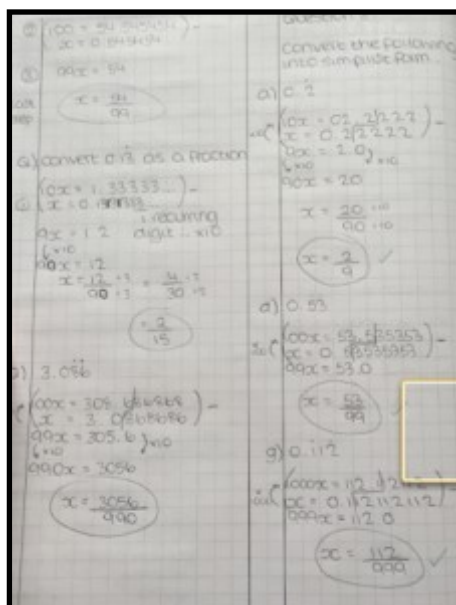 100 = 54.545454
x = 0.545454
99x = 54
x = 54/99
a) convert 0.13 as a fraction
10x = 1.33333...
x = 0.1
recurring
9x = 1.2 digit... x10
x10
90x = 12
x = 12/90 ÷3 ÷3 = /30
= 2/15
3.086
100x = 308.
x = 3.0868686
99x = 305.6 x10
x10
990x = 3056
x = 3056/990
Question
convert the following
into simplist form.
a) 0.2
10x = 02.2/222
x = 0.2/2222
9x = 2.0 x10
x10
90x = 20
x = 20/90 ÷10 ÷10
x = 2/9 ✓
d) 0.53
100x = 53.5/35353
x = 0.
99x = 53.0
x = 53/99
g) 0.112
1000x = 112.
x = 0.112112112
999x = 112.0
x = 112/999 ✓